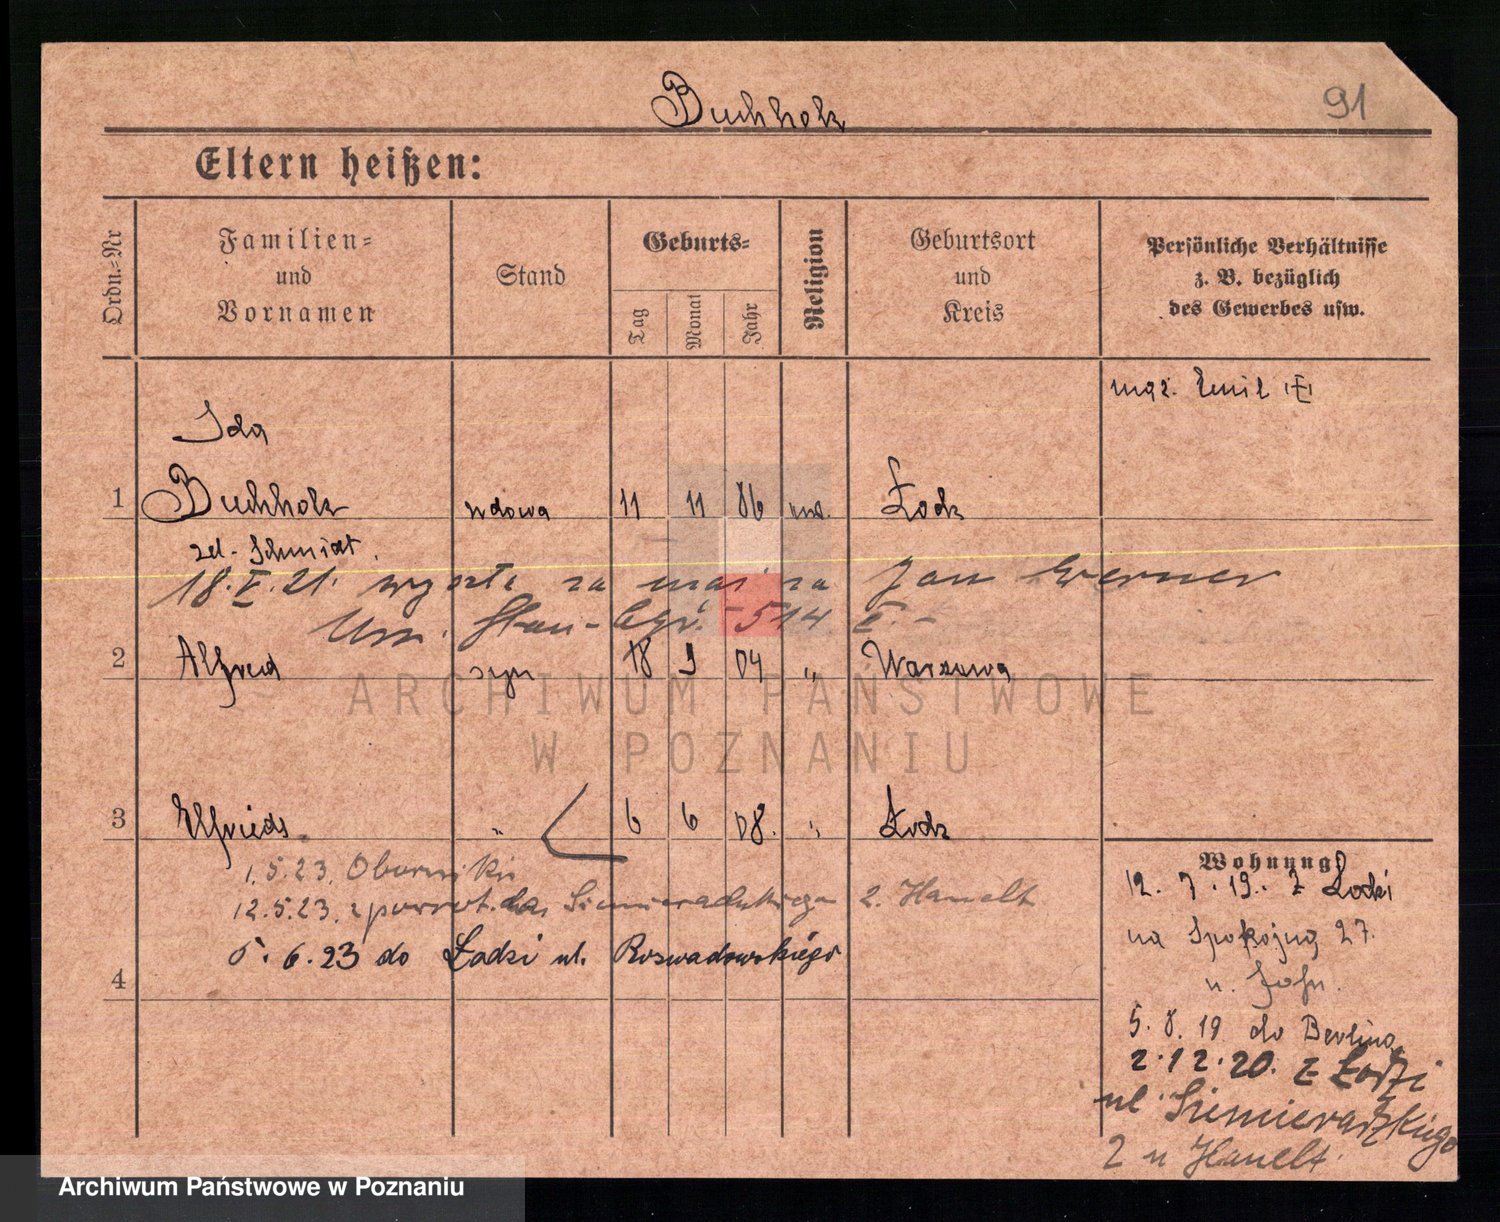 Buchholz
91
Eltern heißen:
Ordn.-Nr
Familien-
und
Vornamen
Stand
Geburts-
Tag
Monat
Jahr
Religion
Geburtsort
und
Kreis
Persönliche Verhältnisse
z. B. bezüglich
des Gewerbes usw.
mąż. Emil
Ida
1 Buchholz wdowa 11 11 86 Łodz
zd. Schmidt.
18.V.21. wyszła za mąż za Jan Werner
514
2 Alfred syn 18 9 04 " Warszawa
ARCHIWUM PAŃSTWOWE
W POZNANIU
3 Elfrieds " 6 6 08. " Łodz
1.5.23. Oborniki
12.5.23. z powrot. Siemieradzkiego 2. Hanelt
5.6.23 do Łodzi ul. Rozwadowskiego
4
Wohnung
12.7.19. z Łodzi
na Spokojną 27.
u. John.
5.8.19 do Berlina
2.12.20. z Łodzi
ul. Siemieradzkiego
2 u Hanelt.
Archiwum Państwowe w Poznaniu